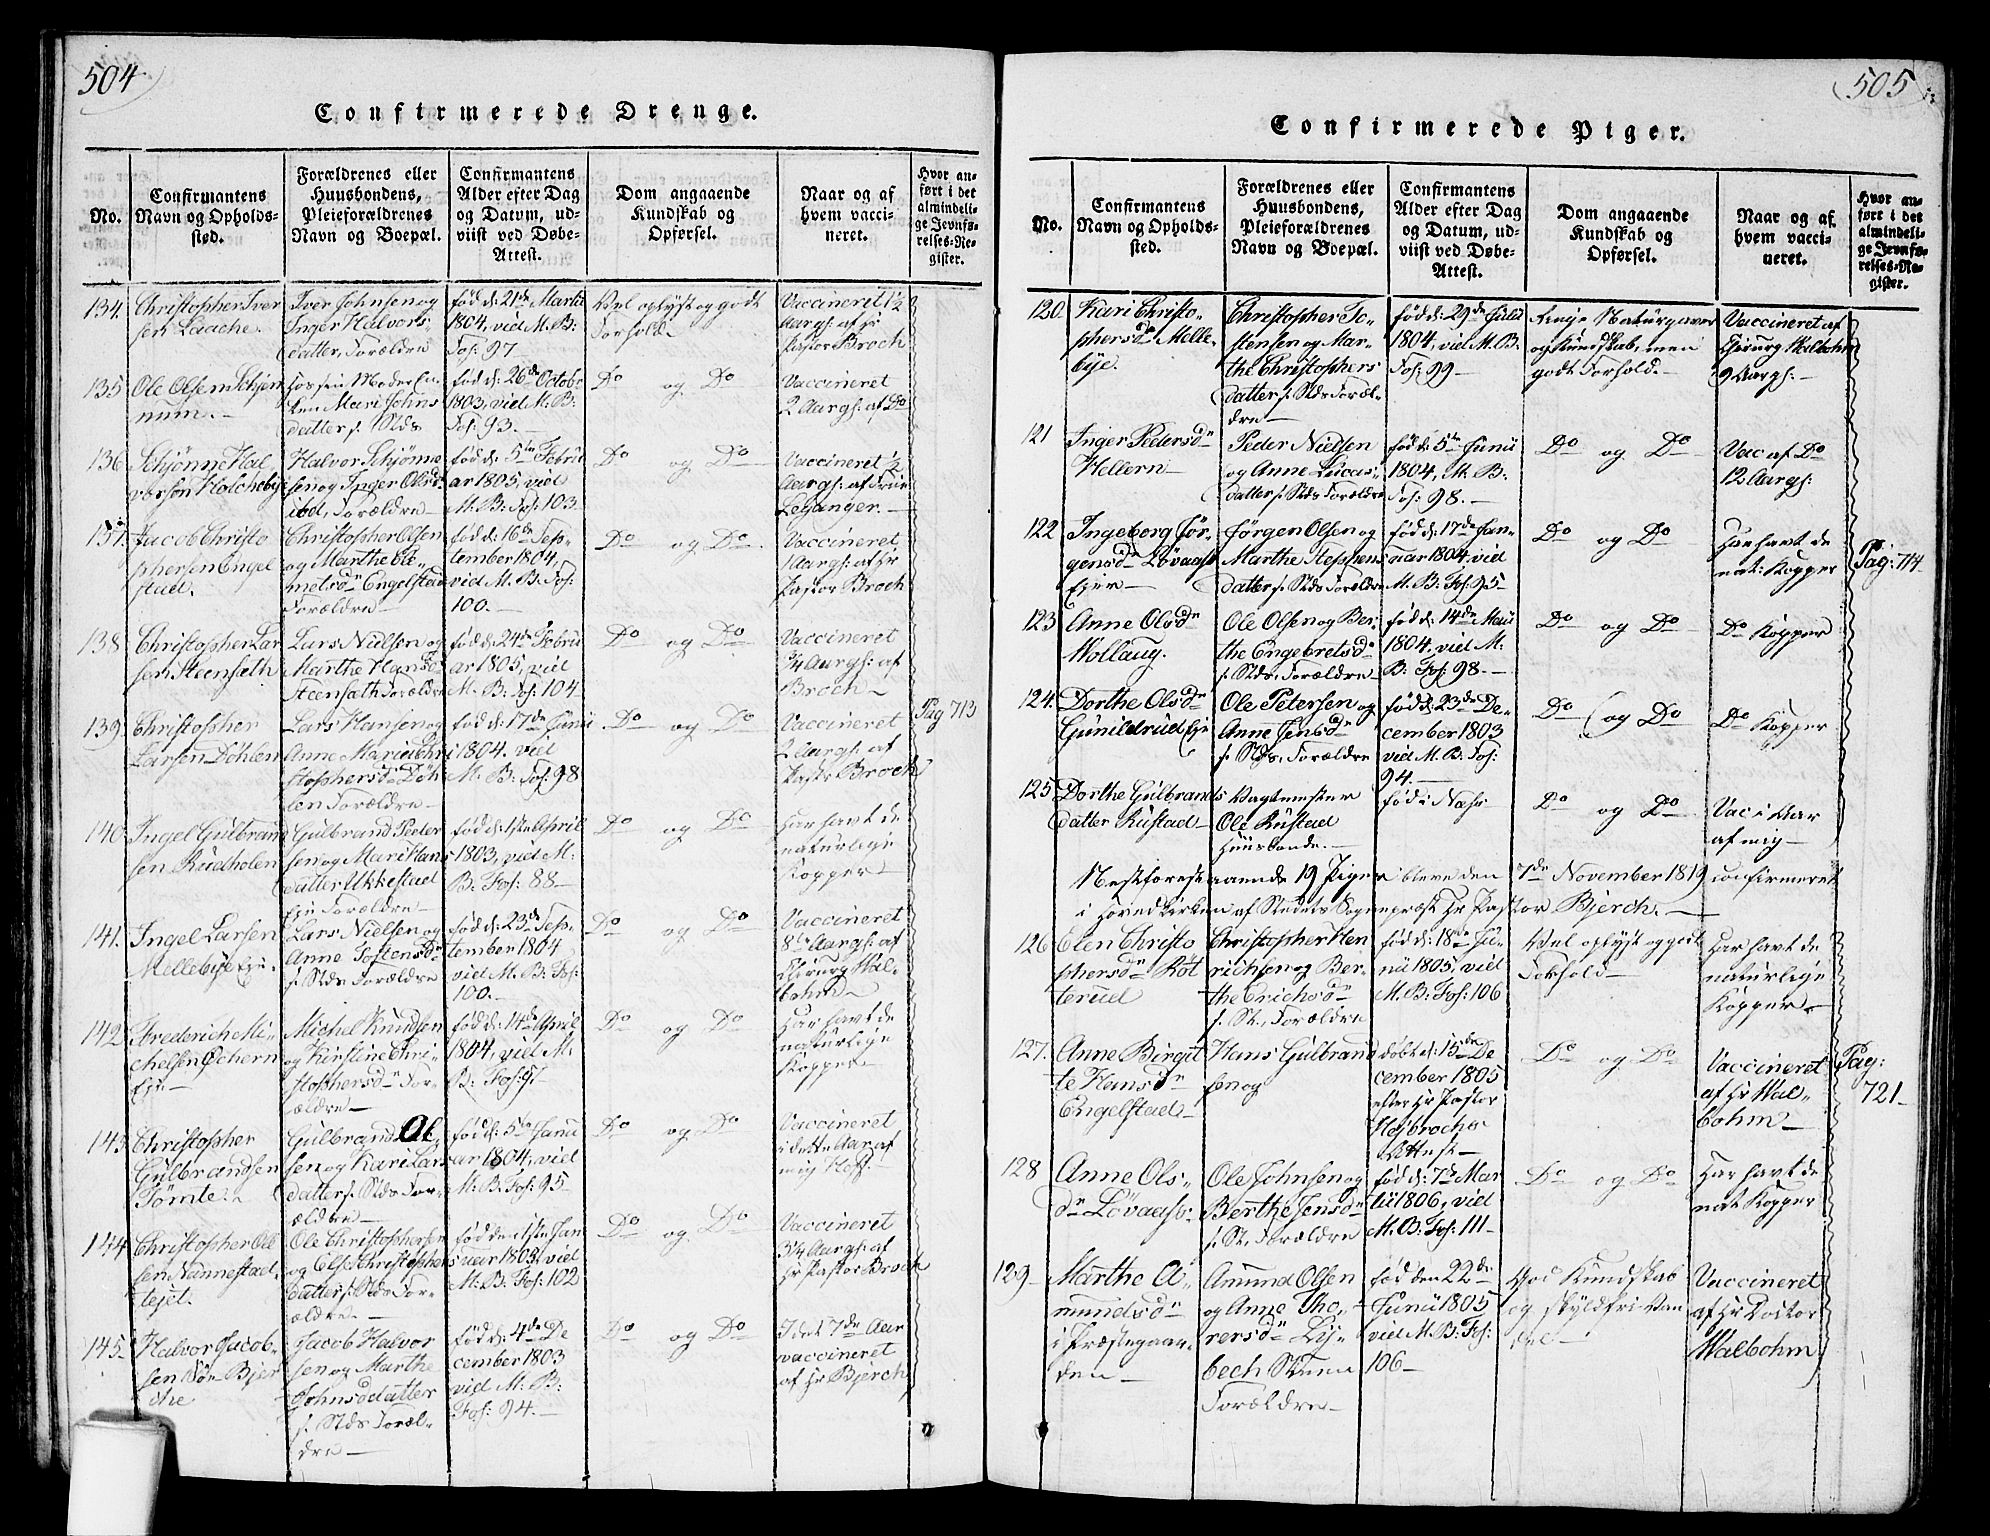 504
Confirmerede Drenge.
No.
Confirmantens
Navn og Opholds-
sted.
Forældrenes eller
Huusbondens,
Pleieforældrenes
Navn og Boepæl.
Confirmantens
Alder efter Dag
og Datum, ud-
viist ved Døbe-
Attest.
Dom angaaende
Kundskab og
Opførsel.
Naar og af
hvem vacci-
neret.
Hvor an-
ført i det
almindeli-
ge Jevnfø-
relses-Re-
gister.
134.
Christopher Iver
sen Laache.
Iver Johnsen og
Inger Halvors
datter, Forældre
fød d: 21de Martii
1804, vid M. B:
Fol: 97
Vel oplyst og godt
Forhold.
Vaccineret 1½
Aargl: af Hr
Pastor Broch
135
Ole Olsen Schjen
num.
Hos sin Moder En
ken Mari Johns
datter s. Stds
fød d: 26de Octobr
1803, vid M. B:
Fol: 93.
Do og Do
Vaccineret
2 Aargl: af Do
136
Schjønne Hal
vorsen Holchebye
Halvor Schjønne
sen og Inger Olsd:
ibid, Forældre
fød d: 5te Febru
ar 1805, vid
M. B: Fol: 103
Do og Do
Vaccineret ½
Aargl: af Frue
Leganger.
137.
Jacob Christo
phersen Engel
stad.
Christopher Olsen
og Marthe Cle-
metsdr Engelstad
Forældre
fød d: 16de Sep-
tember 1804,
vid M. B. Fol:
100.
Do og Do
Vaccineret
1 Aargl: af Hr
Pastor Broch
138.
Christopher Lar
sen Steensæth
Lars Nielsen og
Marthe Hansd
Steensæth Forældre
fød d: 24de Febru
ar 1805, vid
M. B: Fol: 104
Do og Do
Vaccineret
¾ Aargl: af
Broch
139.
Christopher
Larsen Døhlen
Lars Hansen og
Anne Marie Chri
stophersdr Døh
len Forældre
fød d: 17de Junii
1804. vid
M. B: Fol: 98
Do og Do
Vaccineret
2 Aargl: af
Pastor Broch
Pag 713
140.
Ingel Gulbrand
sen Røidholen
Gulbrand Peder
sen og Mari Hans
datter Ukkestad
Eje Forældre
fød d: 1ste April
1803, vid M.
B: Fol: 88
Do og Do
Har havt de
naturlige
Kopper
141.
Ingel Larsen
Mellebye Eje.
Lars Nielsen og
Anne Tostensdr
s. Stds Forældre
fød d: 23de Sep-
tember 1804
vid M. B: Fol:
100.
Do og Do
Vaccineret
8te Aargl: af
Chirurg Wal-
bohm
142.
Frederich Mi-
chelsen Echern
Eje
Michel Knudsen
og Kirstine Chri-
stophersdr For-
ældre
fød d: 14de April
1804, vid M.
B: Fol: 97
Do og Do
Har havt de
naturlige
Kopper
143.
Christopher
Gulbrandsen
Tømte.
Gulbrand Ol
sen og Kari Lars
datter s. Stds For-
ældre
fød d: 5te Janu
ar 1804, vid
M. B. Fol: 95
Do og Do
Vaccineret
i dette Aar af
mig
144
Christopher Ol
sen Nannestad
ejet.
Ole Christophersen
og Else Christophers
datter s. Stds For-
ældre.
fød de 1ste Jan
uar 1803, vid
M. B. Fol: 102
Do og Do
Vaccineret
3¼ Aargl: af
Hr Pastor Broch
145.
Halvor Jacob-
sen Bjer
che
Jacob Halvor
sen og Marthe
Johnsdatter
s. Stds Foræl-
dre
fød d: 4de De
cember 1803
vid M. B:
Fol: 94.
Do og Do
I det 7de Aar
vaccineret
af Hr Bjerch
505
Confirmerede Piger.
No.
Confirmantens
Navn og Opholds-
sted.
Forældrenes eller
Huusbondens,
Pleieforældrenes
Navn og Boepæl.
Confirmantens
Alder efter Dag
og Datum, ud-
viist ved Døbe-
Attest.
Dom angaaende
Kundskab og
Opførsel.
Naar og af
hvem vacci-
neret.
Hvor an-
ført i det
almindeli-
ge Jevnfø-
relses-Re-
gister.
120.
Kari Christo-
phersdr Melle-
bye.
Christopher To-
stensen og Mar-
the Christophers
datter s. Stds Foræl-
dre
fød d: 29de Julii
1804, vid M. B.
Fol: 99
Ringe Naturgaver
og Kundskab, men
godt Forhold.
Vaccineret af
Chirurg Walbohm
9 Aargl:
121
Inger Pedersdr
Hellern
Peder Nielsen
og Anne Lucas-
datter s. Stds Forældre
fød d: 5te Junii
1804, M. B:
Fol: 98.
Do og Do
Vac af Do
12 Aargl:
122
Ingeborg Jør-
gensdr Løvaas
Ejer
Jørgen Olsen og
Marthe Stephens
datter s. Stds Forældre
fød d: 17de Jan-
uar 1804 vid
M. B: Fol: 95
Do og Do
Har havt de
nat: Kopper
Pag: 714
123
Anne Olsdr
Wollaug.
Ole Olsen og Ber-
the Engebretsdr
s. Stds, Forældre
fød d: 14de Maii
1804, vid M.
B: Fol: 98.
Do og Do
Do Kopper
124.
Dorthe Olsdr
Gunildrud Eje
Ole Petersen og
Anne Jensdr
s. Stds, Forældre
fød d: 23de De-
cember 1803
vid M. B: Fol:
94.
Do og Do
Do Kopper
125
Dorthe Gulbrands
datter Rustad
Vagtmester
Ole Rustad
Huusbonde.
fød i Næs
Do og Do
Vac i Aar
af mig
Nestforestaaende 19 Piger bleve den 7de November 1819 confirmeret
i Hovedkirken af Stedets Sognepræst Hr Pastor Bjerch.
126
Elen Christo
phersdr Røt
terud
Christopher Hen
richsen og Ber-
the Erichsdr
s. St., Forældre
fød d: 18de Ju-
nii 1805, vid
M. B: Fol: 106
Vel oplyst og godt
Forhold
Har havt de
naturlige
Kopper
127.
Anne Birgit
te Hansdr
Engelstad
Hans Gulbrand
sen og
døbt d: 15de De
cember 1805
efter Hr Pastor
Hejbrochs
Attest
Do og Do
Vaccineret
af Hr Wal-
bohm
Pag:
721
128
Anne Ols-
dr Løvaas
Ole Johnsen og
Berthe Jensdr
s. St., Forældre
fød d: 7de Mar
tii 1806, vid
M. B: Fol: 111
Do og Do
Har havt de
nat Kopper
129
Marthe A-
mundsdr
i Præstegaar-
den
Amund Olsen
og Anne Tho-
rersdr Ly-
bech Skuen
Forældre
fød den 22de
Junii 1805
vid M. B: Fol:
106
God Kundskab
og skyldfri Van
del
Vaccineret
af Hr Doctor
Walbohm